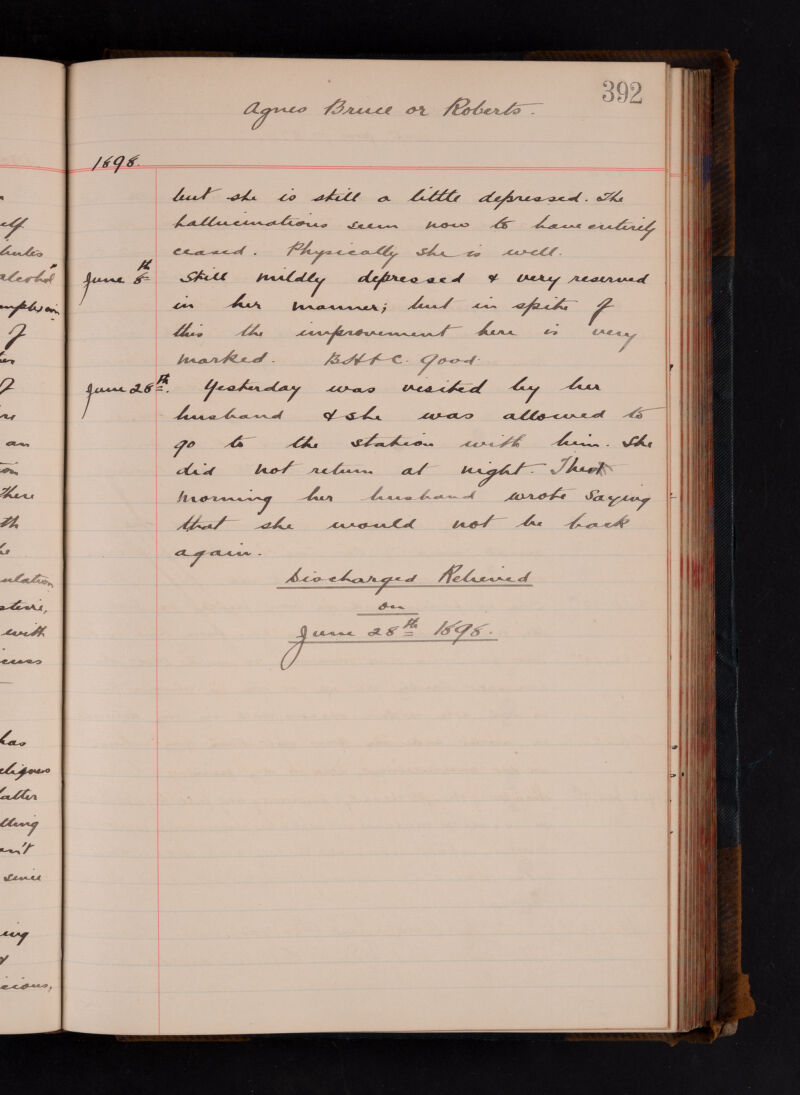 392
Agnes Bruce or Roberts.
1898.
but she is still a little depressed. The
hallucinations seem now to have entirely
ceased. Physically she is well.
June 8th Still mildly depressed & very reserved
in her manner; but in spite of
this the improvement here is very
marked. B.H.& C. good.
June 28th. Yesterday was visited by her
husband & she was allowed to
go to the station with him. She
did not return at night. This
morning her husband wrote saying
that she would not be back
again.
Discharged Relieved
on
June 28th 1898.
alcohol
of
of
an
There
th
ulation
with
has
atter
since